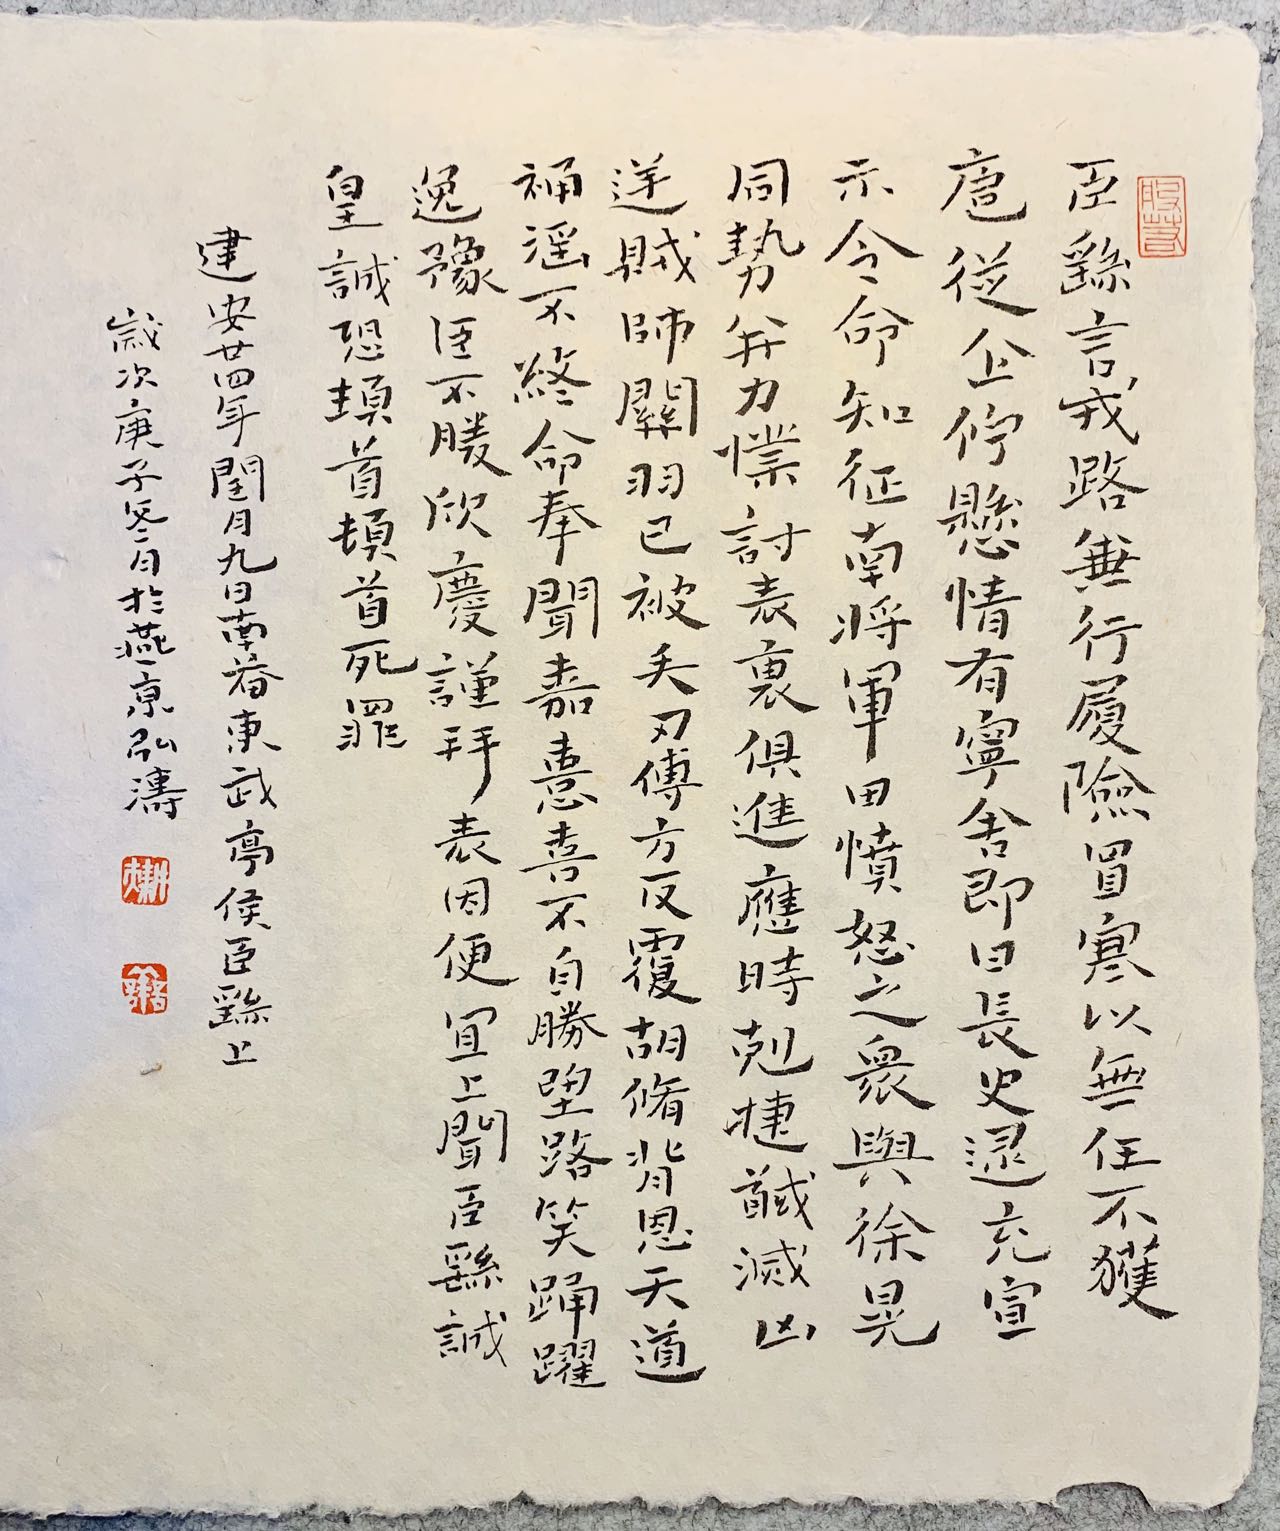 臣繇言戎路無行履險冒寒以無任不獲
扈從企佇懸情有寧舍即日長史逯充宣
示令命知征南將軍田憤怒之衆與徐晃
同勢并力懍討表裏俱進應時剋捷馘滅凶
逆賊帥關羽已被矢刃傅方反覆胡脩背恩天道
禍淫不終命奉聞嘉憙喜不自勝望路笑踊躍
逸豫臣不勝欣慶謹拜表因便宜上聞臣繇誠
皇誠恐頓首頓首死罪
建安廿四年閏月九日南蕃東武亭侯臣繇上
歲次庚子冬月於燕京弘濤